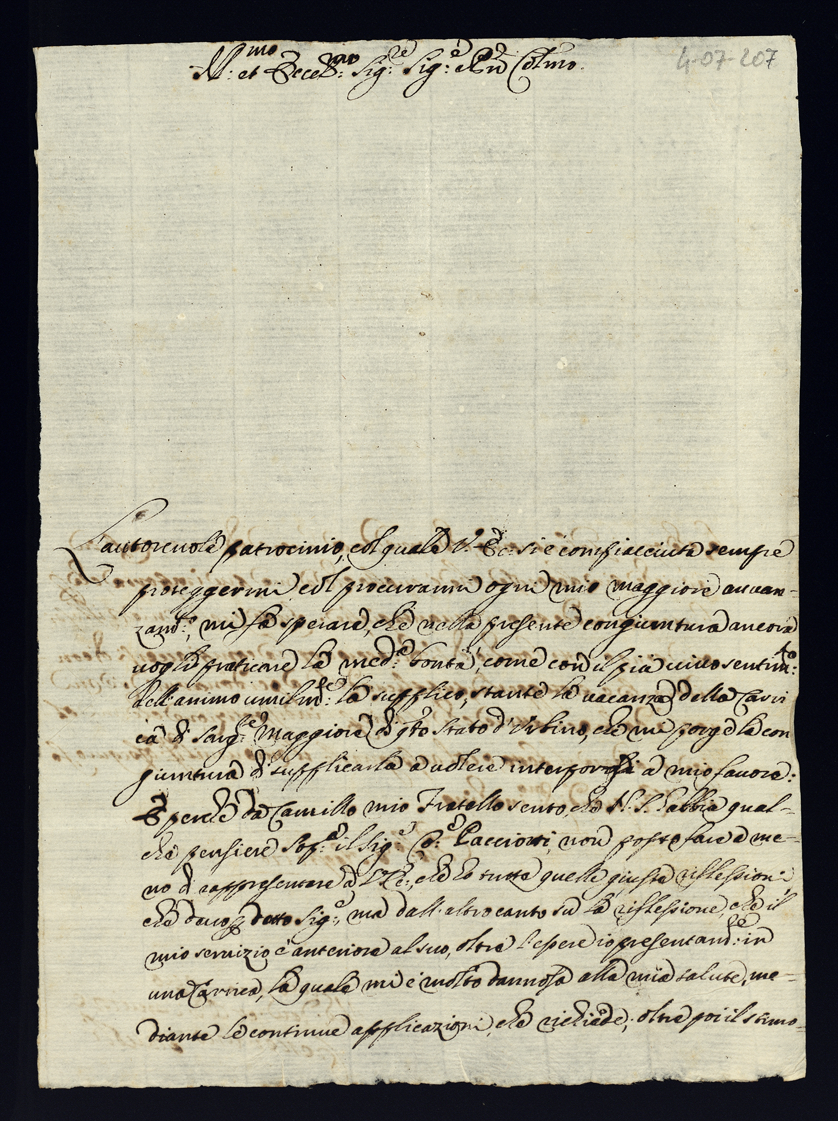 Ill:mo et Ecce:mo Sig:re Sig:e e Pne Colmo.
4-07-207
L'autoreuole patrocinio, col quale V. Ec: si è compiacciuta sempre
proteggermi col procurarmi ogni mio maggiore auuan-
zam:to, mi fà sperare, che nella presente congiuntura ancora
uoglia praticare la med:a bontà, come con il più uiuo sentim:to
dell'animo umilm:te la supplico, stante la uacanza della Cari
ca di Sarg:te Maggiore di q̃to Stato d'Urbino, che mi porge la con
giuntura di supplicarla a uolere interporsi a mio fauore:
E perche da Camillo mio Fratello sento, che N. S. habbia qual-
che pensiere sop:a il Sig:e Co:e Pacciotti, non posso fare à me-
no di rappresentare à V. Ec:, che hò tutta quella giusta riflessione
che deuo p detto Sig:e, mà dall'altro canto sù la riflessione, che il
mio seruizio è anteriore al suo, oltre l'essere io presentam:te in
una Carrica, la quale mi è molto dannosa alla mia salute, me-
diante le continue applicazioni, che richiede; oltre poi il stimo-